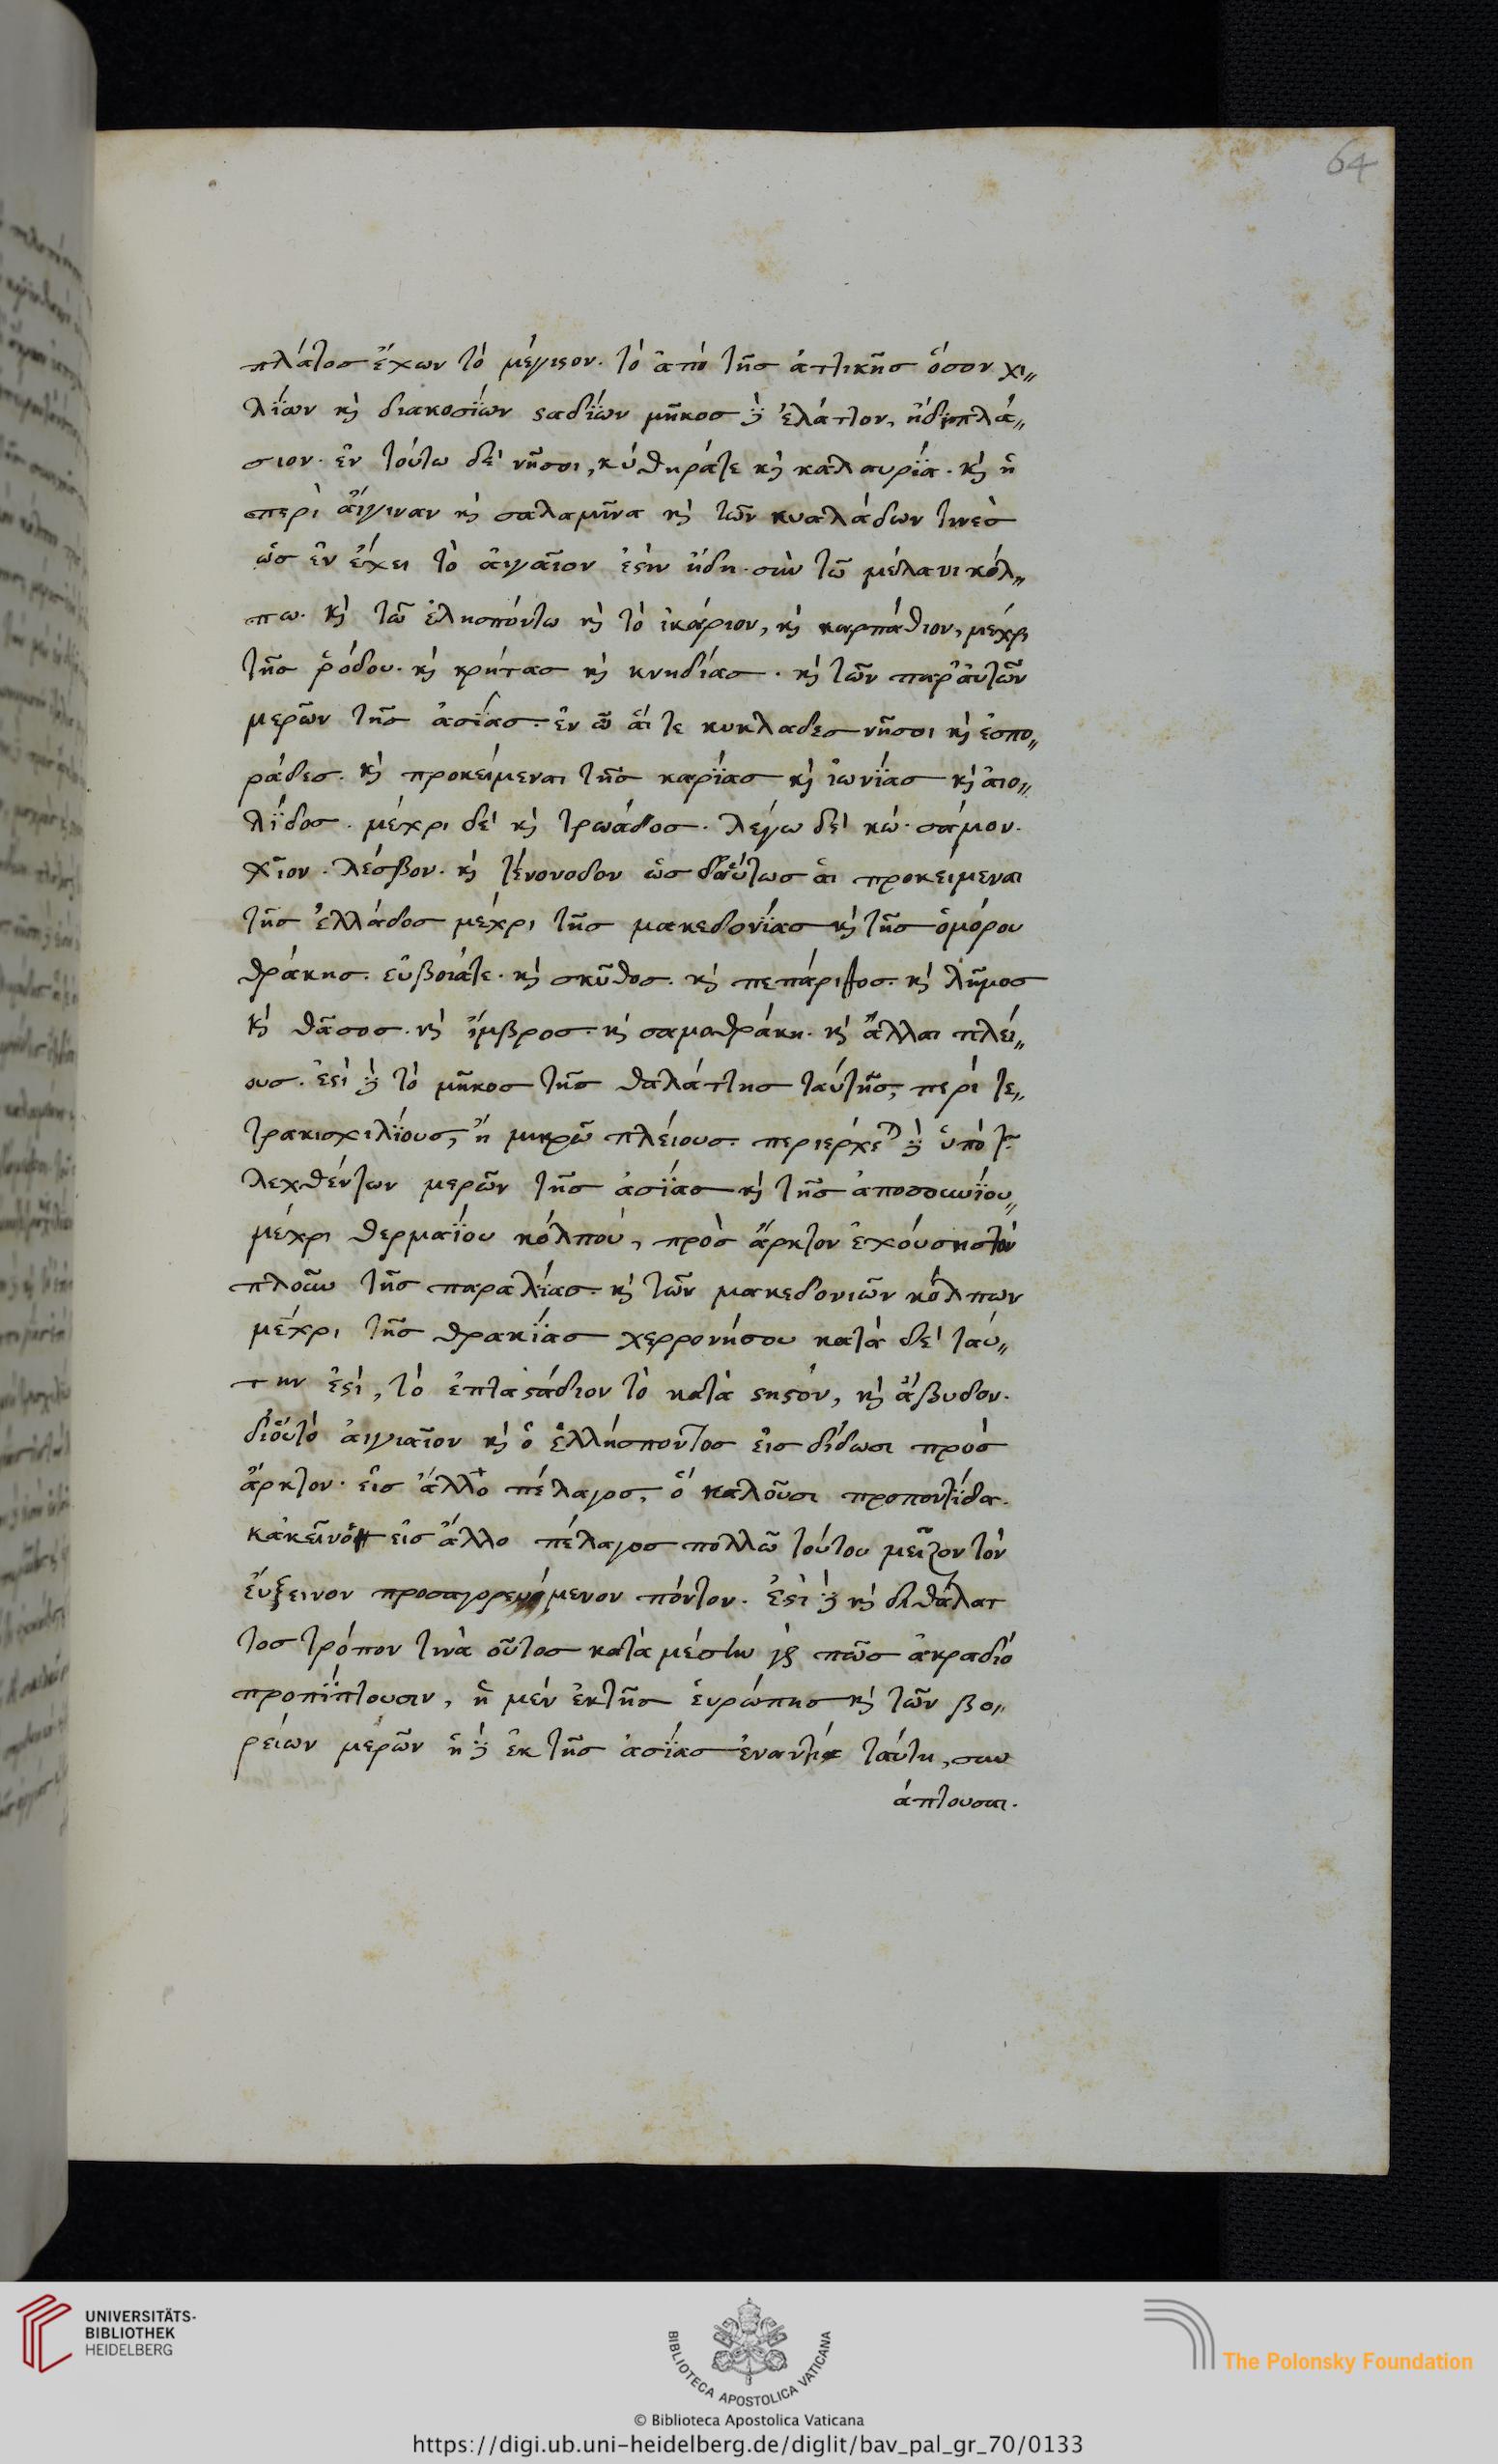 64
πλάτος ἔχων τὸ μέγιστον. τὸ ἀπὸ τῆς ἀττικῆς ὅσον χι〃
λΐων κὶ διακοσΐων σταδΐων μῆκος δὲ ἐλάττον, ἠδιπλά〃
σιον. ἐν τούτω δὲ νῆσοι, κύθηράτε κὶ καλαυρΐα. κὶ ἡ
περὶ ἄιγιναν κὶ σαλαμῖνα κὶ τῶν κυαλάδων τινὲς
ὡς ἐν ἔχει τὸ ἀιγαῖον ἐστὶν ἤδη. σὺν τῶ μέλανι κόλ〃
πω. κὶ τῶ ἑλησπόντω κὶ τὸ ἰκάριον, κὶ καρπάθιον, μέχρι
τῆς ῥόδου. κὶ κρήτας κὶ κνηδίας. κὶ τῶν παρ' ἀυτῶν
μερῶν τῆς ἀσΐας. ἐν ὧ ἅι τε κυκλαδες νῆσοι κὶ ἑσπο〃
ράδες. κὶ προκείμεναι τῆς καρΐας κὶ ἰωνΐας κὶ ἀιο〃
λΐδος. μέχρι δὲ κὶ τρωάδος. λέγω δὲ κώ. σάμον.
χῖον. λέσβον. κὶ τένονοδον ὡς δαύτως ἁι προκείμεναι
τῆς ἑλλάδος μέχρι τῆς μακεδονΐας κὶ τῆς ὁμόρου
θράκης. εὔβοιάτε. κὶ σκῦθος. κὶ πεπάριθος. κὶ λῆμος
κὶ θᾶσος. κὶ ἴμβρος. κὶ σαμοθράκη. κὶ ἄλλαι πλεί〃
ους. ἐστὶ δὲ τὸ μῆκος τῆς θαλάττης ταύτῆς, περὶ τε〃
τρακισχιλΐους, ἢ μικρῶ πλείους. περιέρχεται δὲ ὑπὸ τῶν
λεχθέντων μερῶν τῆς ἀσΐας κὶ τῆς ἀποσουνΐου〃
μέχρι θερμαΐου κόλπου, πρὸς ἄρκτον ἐχούσηστὸν
πλοῦν τῆς παραλΐας. κὶ τῶν μακεδονιῶν κόλπων
μέχρι τῆς θρακΐας χερρονήσου κατὰ δὲ ταύ〃
την ἐστὶ, τὸ ἑπταστάδιον τὸ κατὰ σηστόν, κὶ ἄβυδον.
δἰοὗτὸ ἀιγιαῖον κὶ ὁ ἑλλήσποντος εἰς δίδωσι πρὸς
ἄρκτον. εἰς ἄλλο πέλαγος, ὁ καλοῦσι προποντΐδα.
κἀκεῖνο εἰς ἄλλο πέλαγος πολλῶ τούτου μεῖζον τὸν
ἔυξεινον προσαγορευόμενον πόντον. ἐστὶ δὲ κὶ διθάλατ
τος τρόπον τινὰ οὗτος κατὰ μέσην γὰρ πῶς ἄκραδύο
προπΐπτουσιν, ἡ μὲν ἐκτῆς ἑυρώπης κὶ τῶν βο〃
ρείων μερῶν ἡ δὲ ἐκ τῆς ἀσΐας ἐναντία ταύτη, συν
άπτουσαι.
UNIVERSITÄTS-
BIBLIOTHEK
HEIDELBERG
BIBLIOTECA APOSTOLICA VATICANA
The Polonsky Foundation
© Biblioteca Apostolica Vaticana
https://digi.ub.uni-heidelberg.de/diglit/bav_pal_gr_70/0133